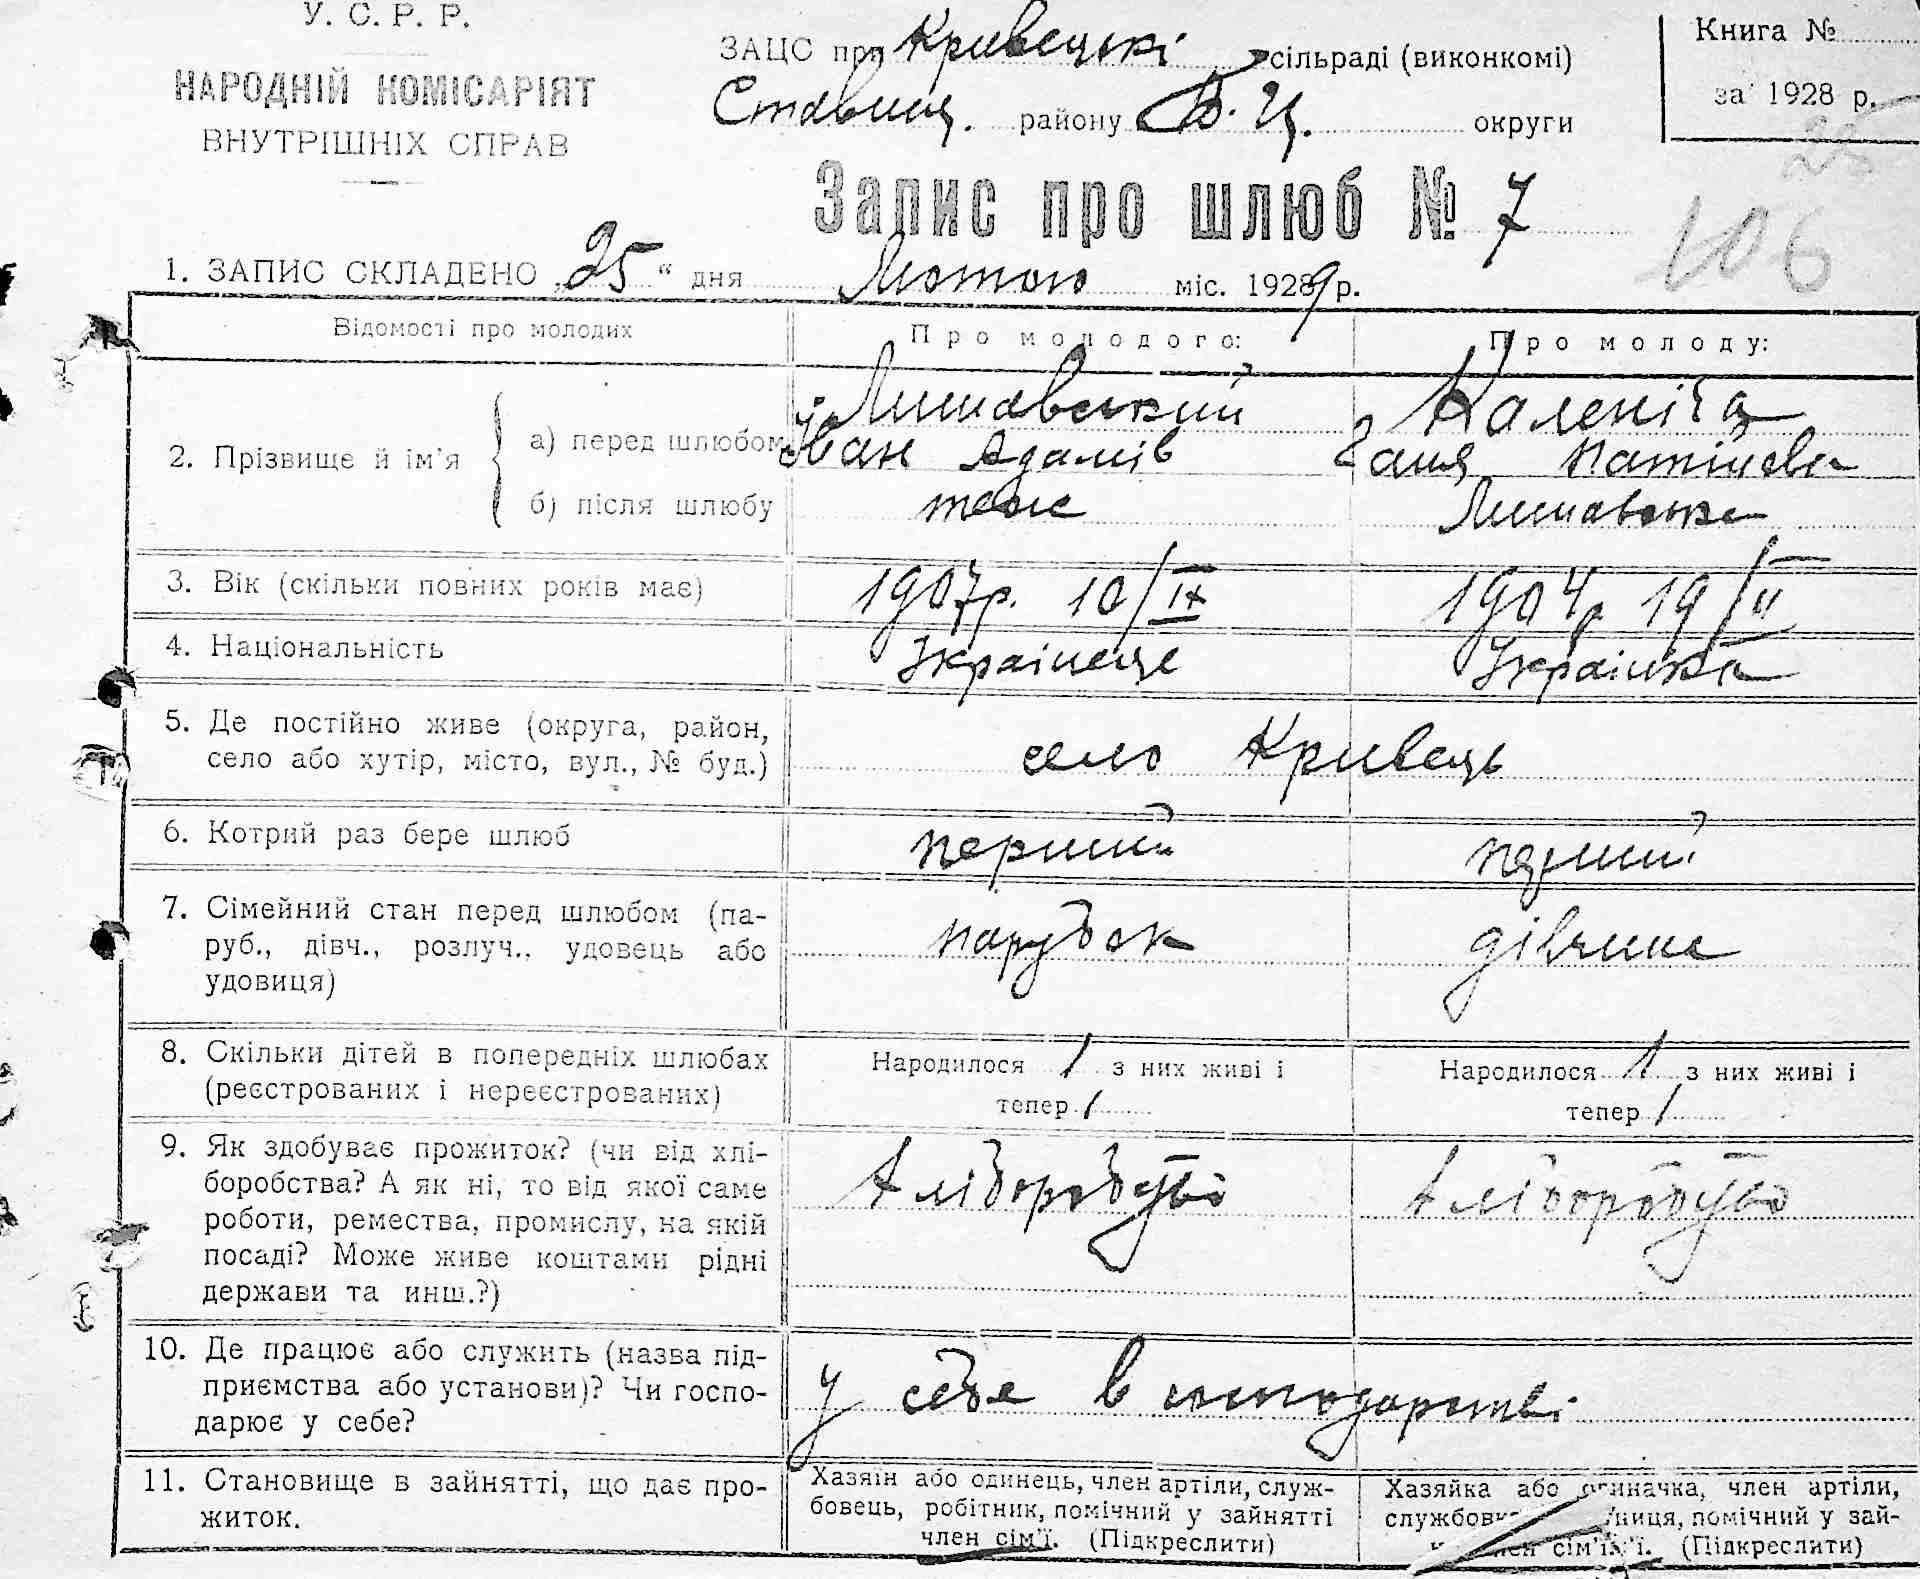 У. С. Р. Р.
НАРОДНІЙ КОМІСАРІЯТ
ВНУТРІШНІХ СПРАВ
ЗАЦС при Кривецькі сільраді (виконкомі)
Ставищ. району Б. Ц. округи
Книга №
за 1928 р.
25
106
Запис про шлюб № 7
1. ЗАПИС СКЛАДЕНО „25“ дня Лютого міс. 1929 р.
Відомості про молодих
Про молодого:
Про молоду:
2. Прізвище й ім'я
а) перед шлюбом
Іван Адамів
Ганя
б) після шлюбу
теж
3. Вік (скільки повних років має)
1907р. 10/IX
1904р 19/II
4. Національність
Українець
Українка
5. Де постійно живе (округа, район,
село або хутір, місто, вул., № буд.)
село Кривець
6. Котрий раз бере шлюб
перший
перший
7. Сімейний стан перед шлюбом (па-
руб., дівч., розлуч., удовець або
удовиця)
парубок
дівчина
8. Скільки дітей в попередніх шлюбах
(реєстрованих і нереєстрованих)
Народилося / з них живі і
тепер /
Народилося / з них живі і
тепер /
9. Як здобуває прожиток? (чи від хлі-
боробства? А як ні, то від якої саме
роботи, ремества, промислу, на якій
посаді? Може живе коштами рідні
держави та инш.?)
Хліборобство
Хліборобство
10. Де працює або служить (назва під-
приємства або установи)? Чи госпо-
дарює у себе?
у себе в господарстві
11. Становище в зайнятті, що дає про-
житок.
Хазяїн або одинець, член артіли, служ-
бовець, робітник, помічний у зайнятті
член сім'ї. (Підкреслити)
Хазяйка або одиначка, член артіли,
помічний у зай-
сім'ї. (Підкреслити)